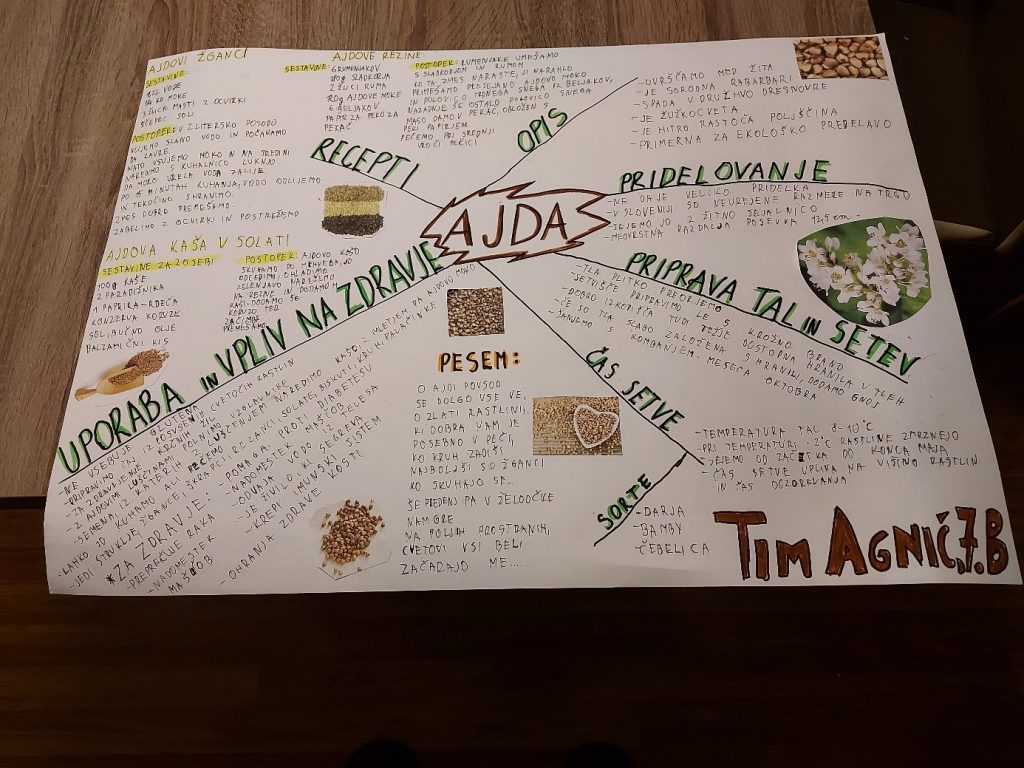 AJDOVI ŽGANCI
SESTAVINE:
VODE
MOKE
MASTI Z OCVIRKI
ŠČEPEC SOLI
POSTOPEK: V 2 LITERSKO POSODO
VLIJEMO SLANO VODO IN POČAKAMO
DA ZAVRE.
NATO VSUJEMO MOKO IN NA SREDINI
NAREDIMO S KUHALNICO LUKNJO
DA MOKO VRELA VODA ZALIJE.
PO 15 MINUTAH KUHANJA, VODO ODLIJEMO
IN TEKOČINO SHRANIMO.
ZMES DOBRO PREMEŠAMO.
ZABELIMO Z OCVIRKI IN POSTREŽEMO
AJDOVE REZINE
SESTAVINE: 6 RUMENJAKOV
SLADKORJA
2 ŽLICI RUMA
AJDOVE MOKE
6 BELJAKOV
PAPIR ZA PEKO ZA
PEKAČ
POSTOPEK: RUMENJAKE UMEŠAMO
S SLADKORJEM IN RUMOM
KO TA ZMES NARASTE, JI NARAHLO
PRIMEŠAMO PRESEJANO AJDOVO MOKO
IN POLOVICO TRDNEGA SNEGA IZ BELJAKOV,
NAZADNJE ŠE OSTALO POLOVICO SNEGA
MASO DAMO V PEKAČ, OBLOŽEN S
PEKI PAPIRJEM
PEČEMO PRI SREDNJI
VROČI PEČICI
AJDOVA KAŠA V SOLATI
SESTAVINE ZA 20 SEBI
100g KAŠE
2 PARADIŽNIKA
1 PAPRIKA-RDEČA
KONZERVA KORUZE
SOL, BUČNO OLJE
BALZAMIČNI KIS
POSTOPEK: AJDOVO KAŠO
SKUHAMO PO MEHKEBA, JO
ODCEDIMO, OHLADIMO
ZELENJAVO NAREŽEMO
NA REZINE IN DODAMO H
KAŠI. DODAMO ŠE
KORUZO TER
ZAČIMBE
PREMEŠAMO
RECEPTI
OPIS
-UVRŠČAMO MED ŽITA
-JE SORODNA RABARBARI
-SPADA V DRUŽINO DRESNOVKE
-JE ŽUŽKOCVETA
-JE HITRO RASTOČA POLJŠČINA
-PRIMERNA ZA EKOLOŠKO PREDELAVO
AJDA
PRIDELOVANJE
-NE DAJE VELIKO PRIDELKA
-V SLOVENIJI SO NEUREJENE RAZMERE NA TRGU
-SEJEMO JO Z ŽITNO SEJALNICO
-MEDVRSTNA RAZDALJA POSEVKA 12,5 cm
PRIPRAVA TAL IN SETEV
-TLA PLITKO PREORJEMO
-SETVIŠČE PRIPRAVIMO LE S KROŽNO BRANO
-DOBRO IZKORIŠČA TUDI TEŽJE DOSTOPNA HRANILA V TLEH
-ČE SO TLA SLABO ZALOŽENA S HRANILI, DODAMO GNOJ
-ŽANJEMO S KOMBAJNJEM MESECA OKTOBRA
ČAS SETVE
-TEMPERATURA TAL 8-10°C
-PRI TEMPERATURI -2°C RASTLINE ZMRZNEJO
-SEJEMO OD ZAČETKA DO KONCA MAJA
-ČAS SETVE VPLIVA NA VIŠINO RASTLIN
IN ČAS DOZOREVANJA
SORTE
-DARJA
-BAMBY
-ČEBELICA
UPORABA IN VPLIV NA ZDRAVJE
-NE VSEBUJE GLUTENA
-PRIPRAVIMO ČAJ
-Z AJDOVIMI LUŠČINAMI POLNIMO VZGLAVNIKE
-LAHKO JO KUHAMO ALI PEČEMO
-JEDI: ŠTRUKLJI, ŽGANCI, KRAPCI, REZANCI, SOLATE, BISKVITI, KRUH, PALAČINKE
*ZA ZDRAVJE:
-PREPREČUJE RAKA
-NADOMESTEK MAŠČOB
-POMAGA PROTI DIABETESU
-ODVAJA VODO IZ TELESA
-JE ŽIVILO KI
-KREPI IMUNSKI SISTEM
-OHRANJA ZDRAVE KOSTI
PESEM:
O AJDI POVSOD
SE DOLGO VSE VE,
O ZLATI RASTLINI,
KI DOBRA VAM JE
POSEBNO V PEČI,
KO KRUH ZADIŠI
NAJBOLJŠI SO ŽGANCI
KO SKUHAJO SE...
ŠE PREDENJ PA V ŽELODČKE
NAM GRE
NA POLJIH PROSTRANIH,
CVETOVI VSI BELI
ZAČARAJO ME....
TIM AGNIČ, 7.B